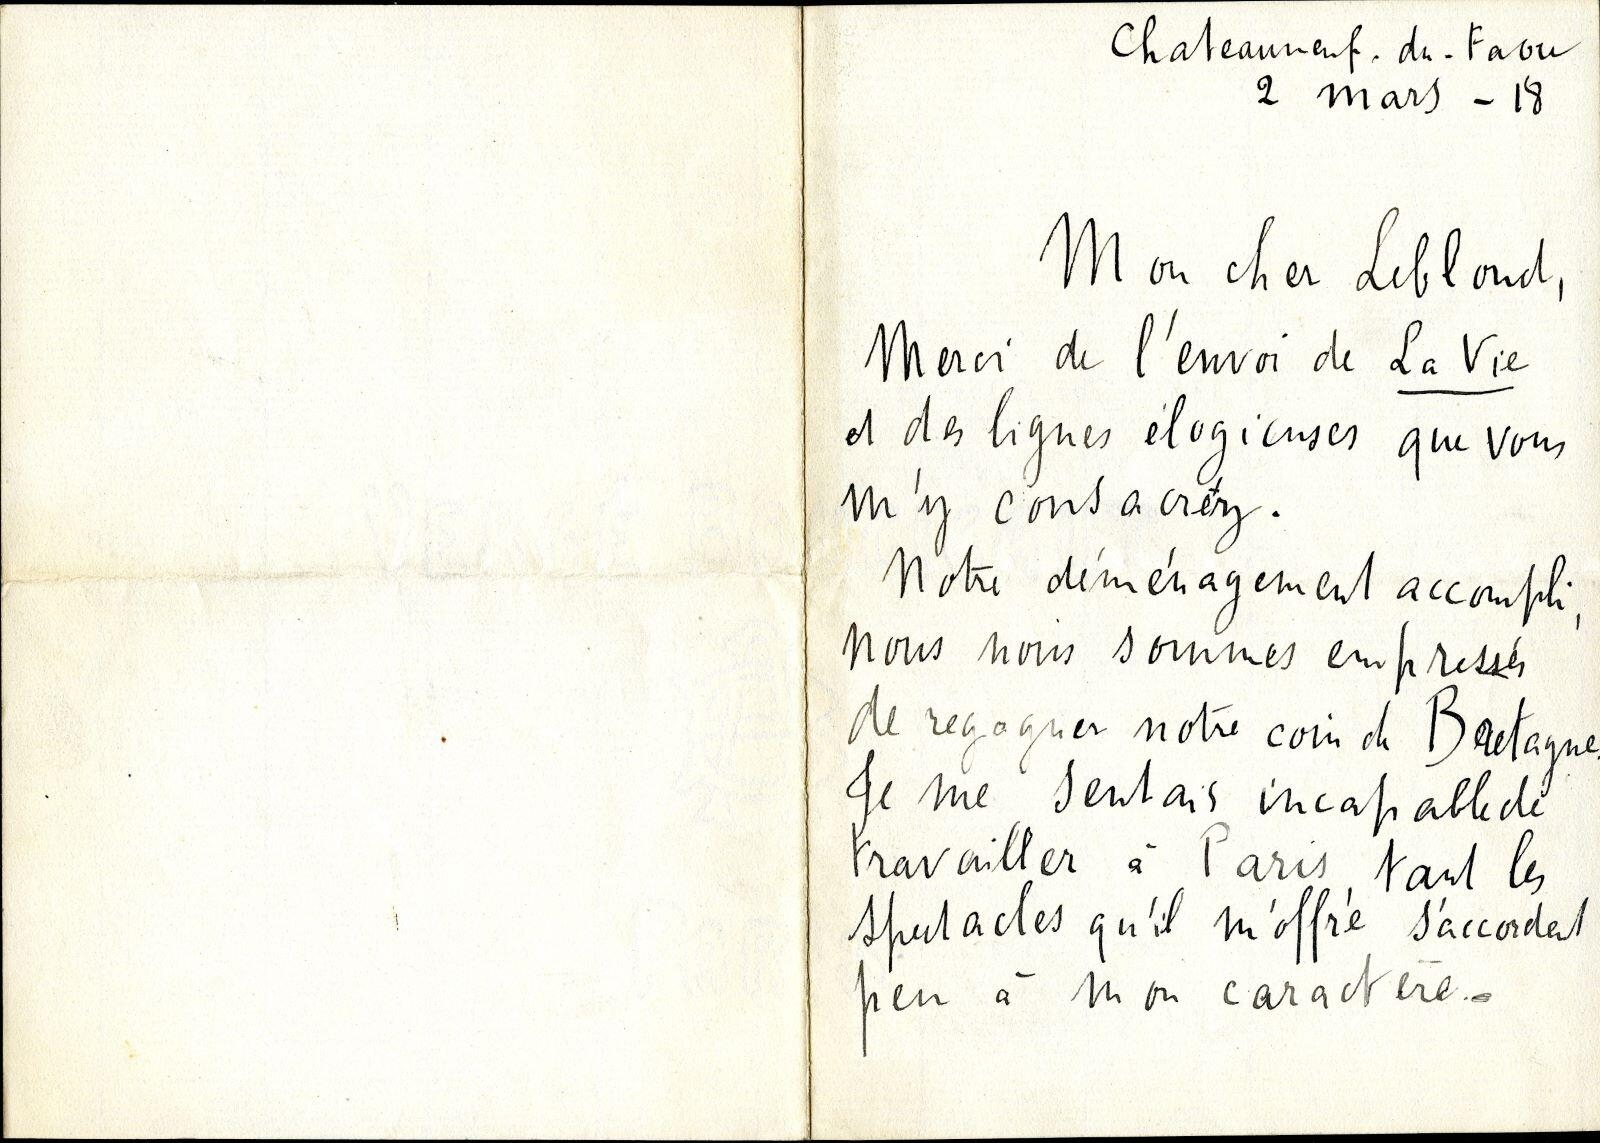 Chateauneuf. du. Faou
2 mars - 18
Mon cher Leblond,
Merci de l'envoi de La Vie
et des lignes élogieuses que vous
m'y consacrez.
Notre déménagement accompli,
nous nous sommes empressés
de regagner notre coin de Bretagne.
Je me sentais incapable de
travailler à Paris, tant les
spectacles qu'il m'offre s'accordent
peu à mon caractère.-